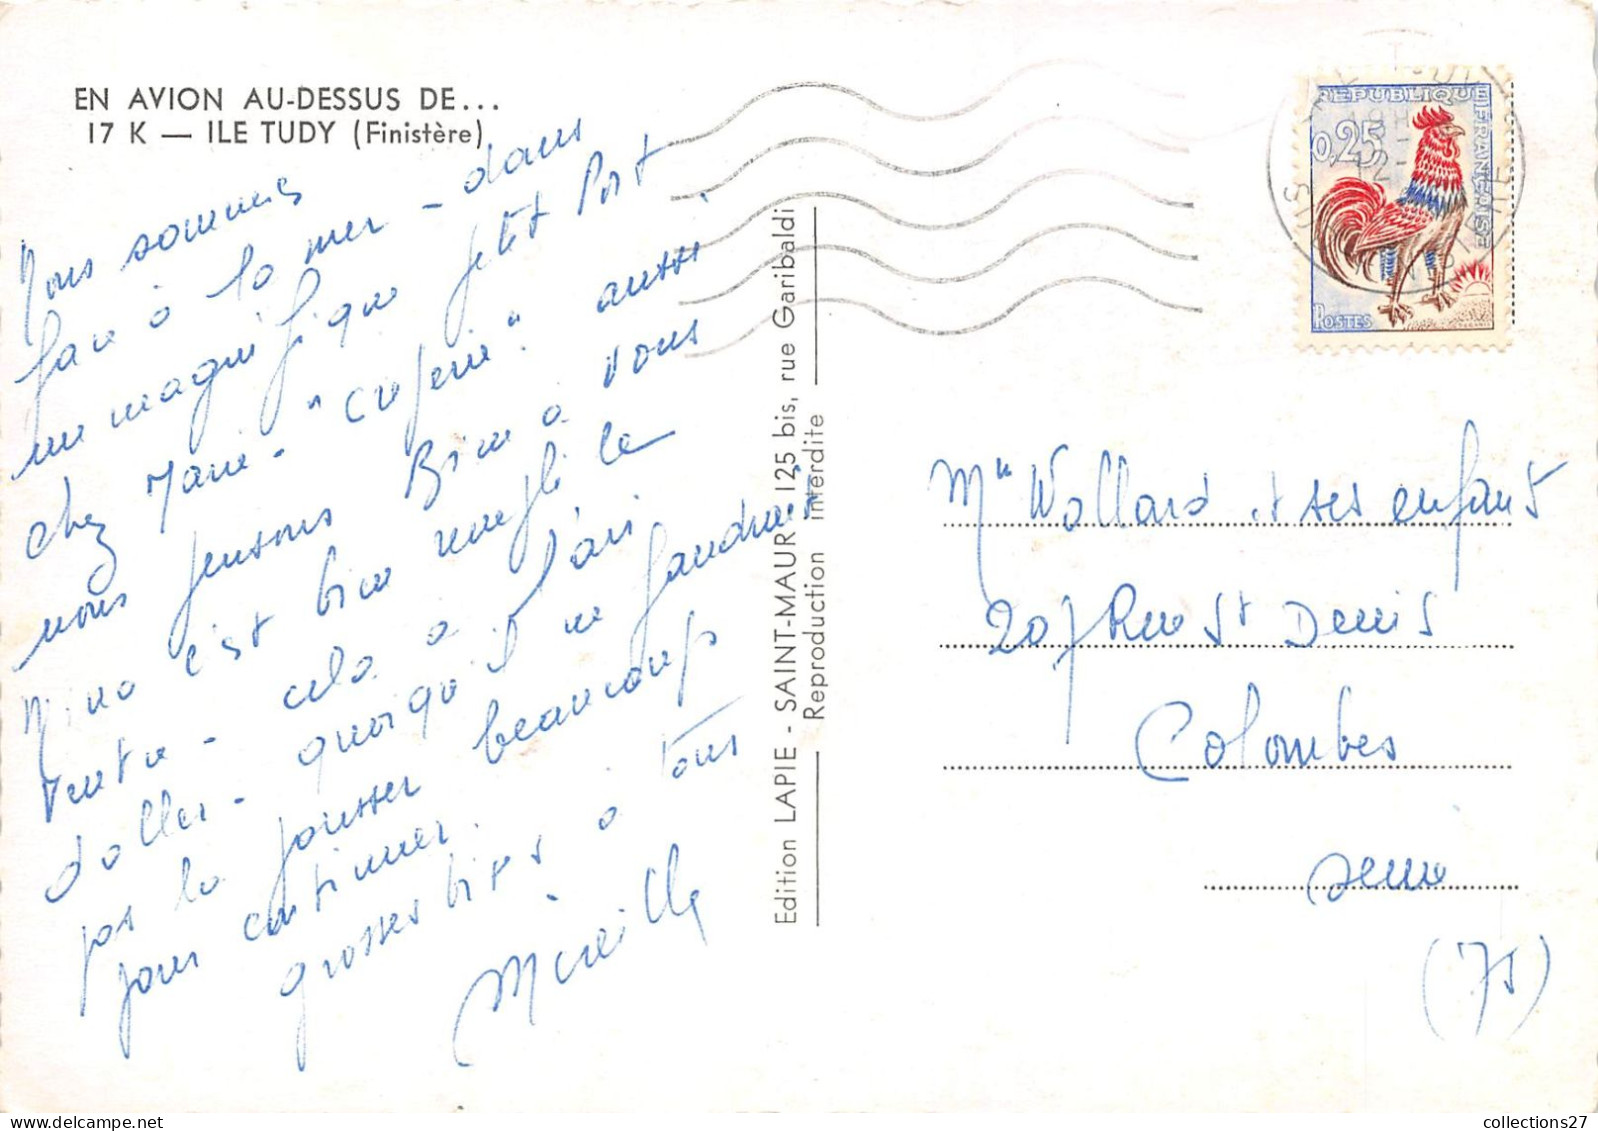 EN AVION AU-DESSUS DE...
17 K — ILE TUDY (Finistère)
Nous sommes
face à la mer - dans
un magnifique petit Port
chez Marie - " " aussi
nous pensons Bien à vous.
Nino s'est bien rempli le
ventre - cela a l'air
d'aller - quoiqu'il ne faudrait
pas le pousser beaucoup
pour continuer.
grosses bises à tous
Mireille
Edition LAPIE - SAINT-MAUR 125 bis, rue Garibaldi
Reproduction interdite
REPUBLIQUE FRANÇAISE
0,25
POSTES
19H
12-
Mme Wollard et ses enfants
207 Rue St Denis
Colombes
Seine
(75)
collections27